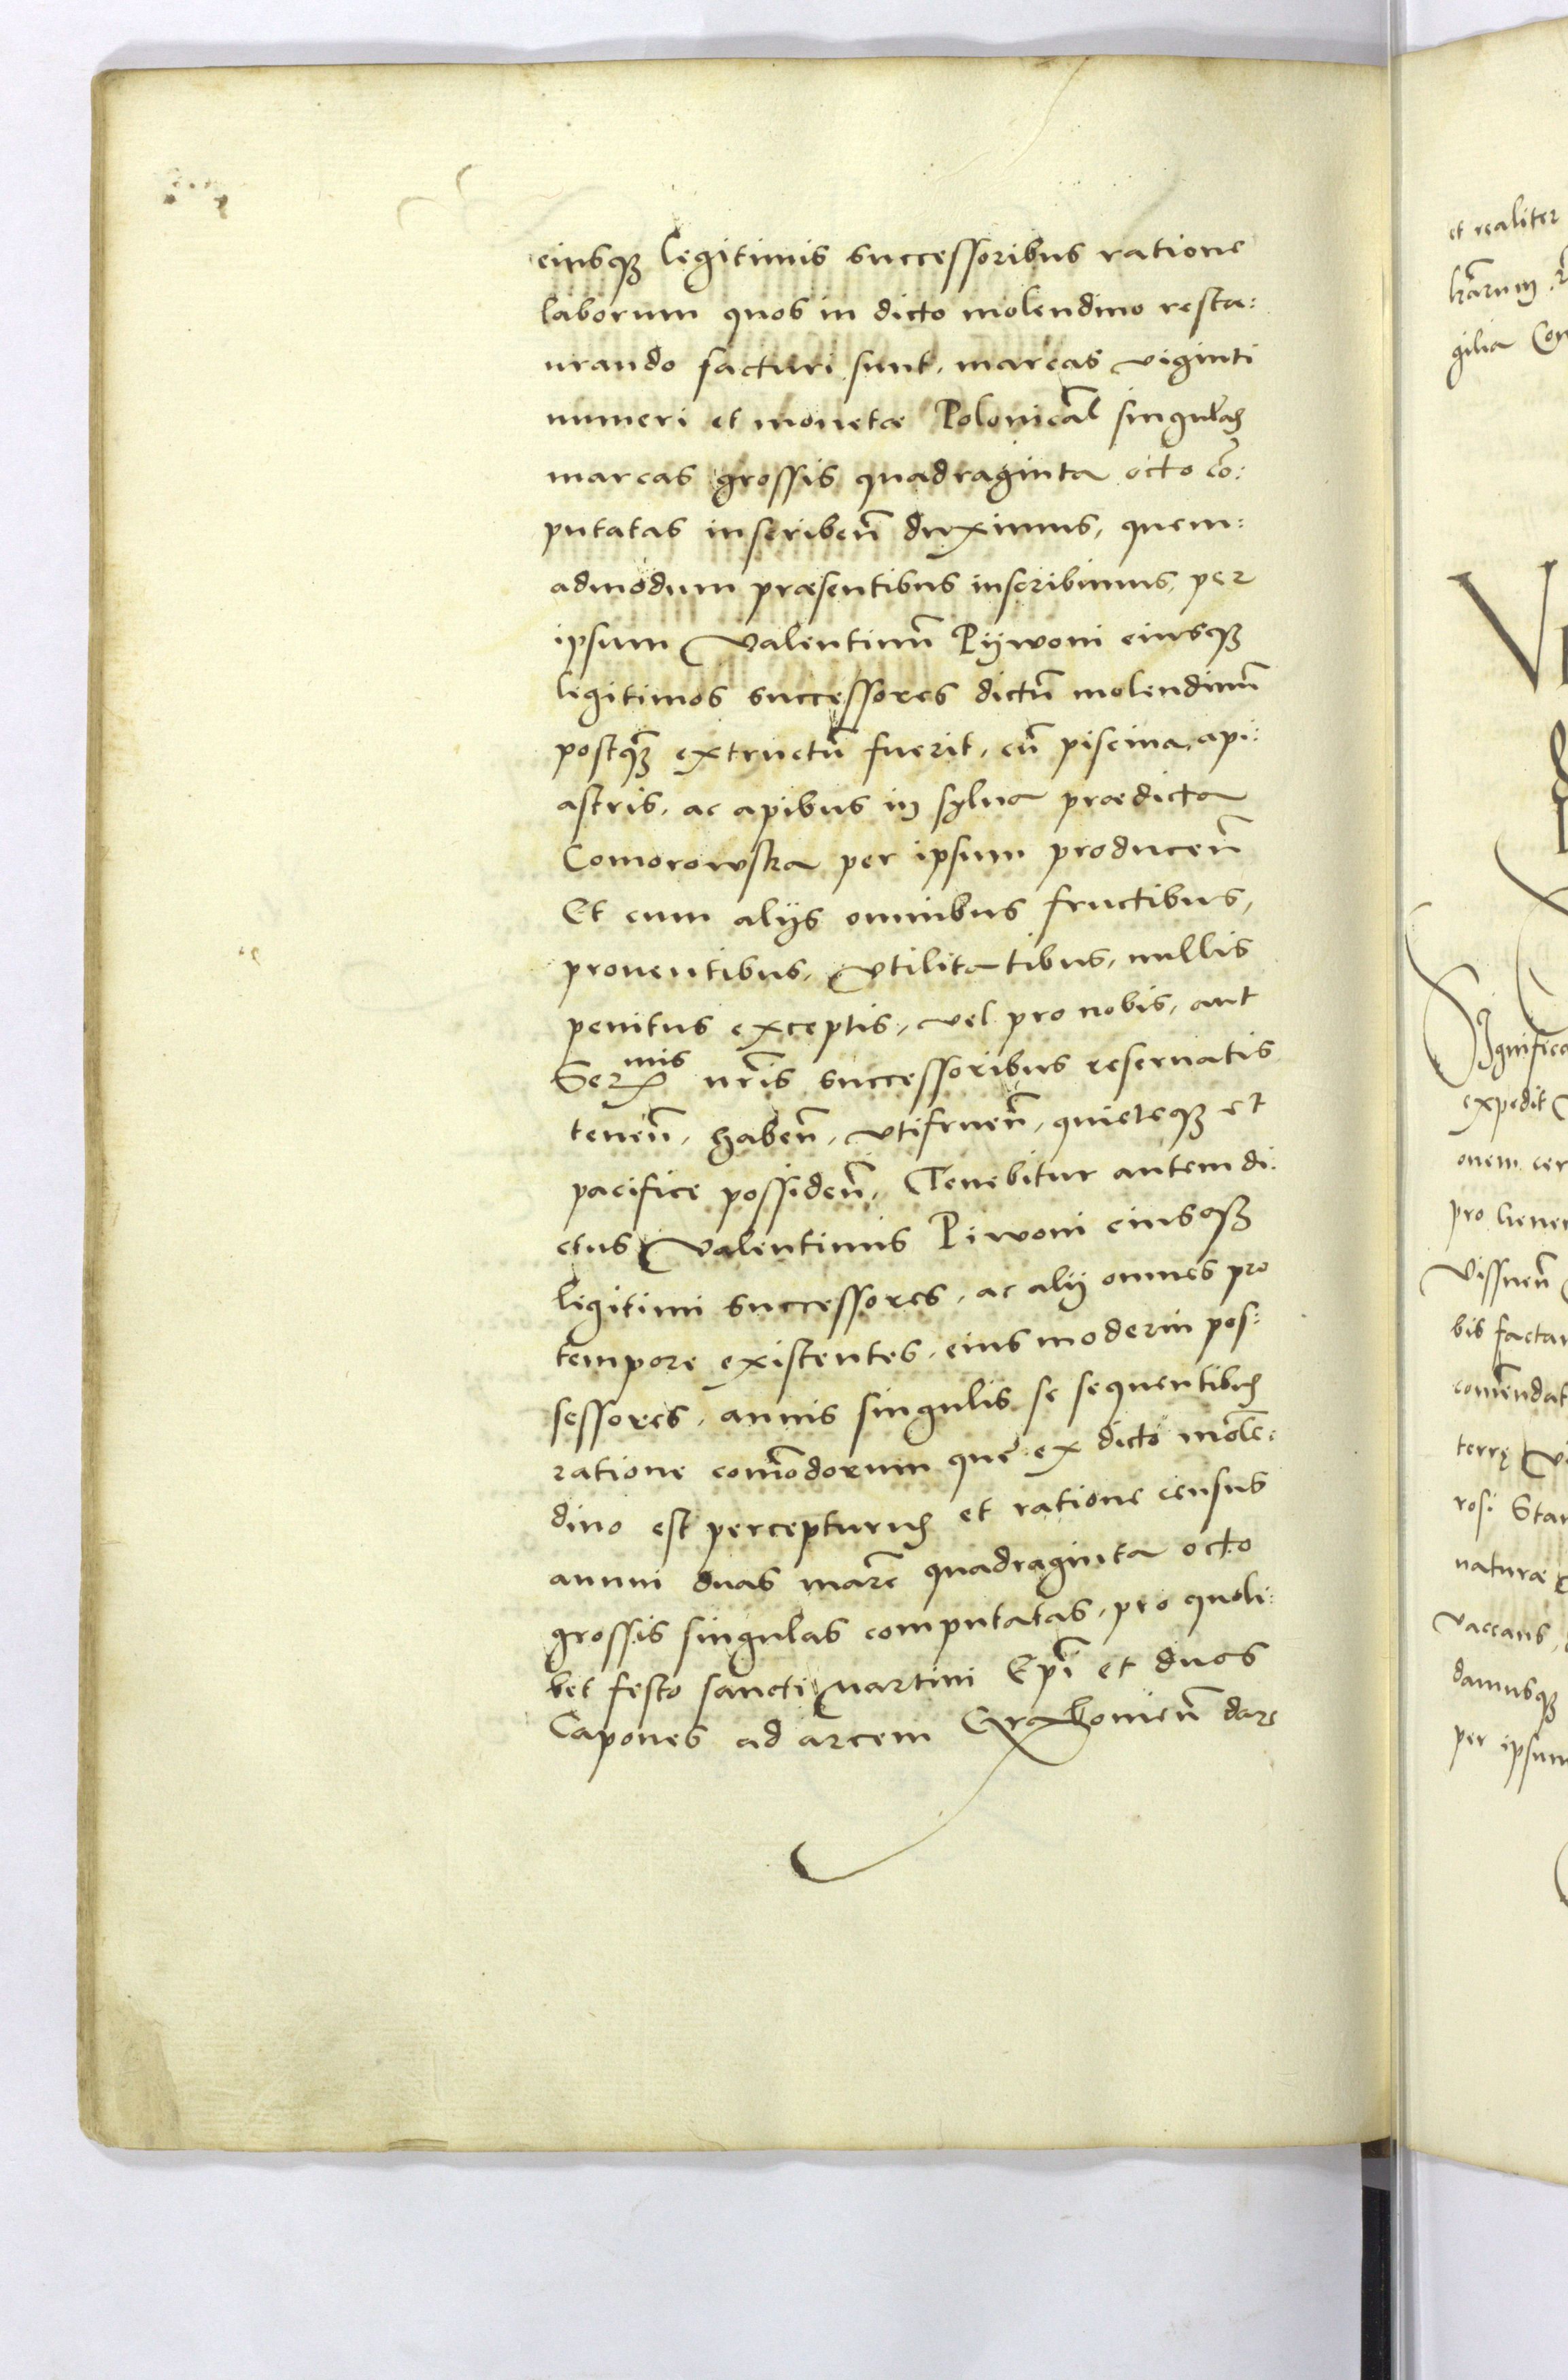 eiusq₃ legitimis successoribus ratione
laborum quos in dicto molendino resta:
urando facturi sunt, marcas viginti
numeri et monetæ Polonicāl singulas
marcas grossis quadraginta octo cō:
putatas inscribeñ duximus, quem:
admodum præsentibus inscribimus, per
ipsum Valentinū Pijwoni eiusq₃
legitimos successores dictū molendinū
postq̄₃ extructū fuerit, cū piscina, api:
astris, ac apibus in sylua prædicta
Comorowska per ipsum produceñ
Et cum alijs omnibus fructibus,
prouentibus, vtilitatibus, nullis
penitus exceptis, vel pro nobis, aut
Ser^mis nr̄is successoribus reseruatis
teneñ, habeñ, vtifrueñ, quieteq₃ et
pacifice possideñ, Tenebitur autem di:
ctus Valentinus Piwoni eiusq₃
legitimi successores, ac alij omnes pro
tempore existentes, eius moderni pos:
sessores, annis singulis se sequentibus
ratione com̄odorum que ex dicto molē:
dino est percepturus et ratione census
annui duas marc̄ quadraginta octo
grossis singulas computatas, pro quoli:
bet festo sancti Martini Ep̄i et duos
Capones ad arcem Grabouieñ dare
et realiter
gilia
Significa
expedit
onem
pro
Vissneñ
bis factam
com̄endat
terrę
rosi Stan
naturæ
vaccans,
damusq₃
per ipsum